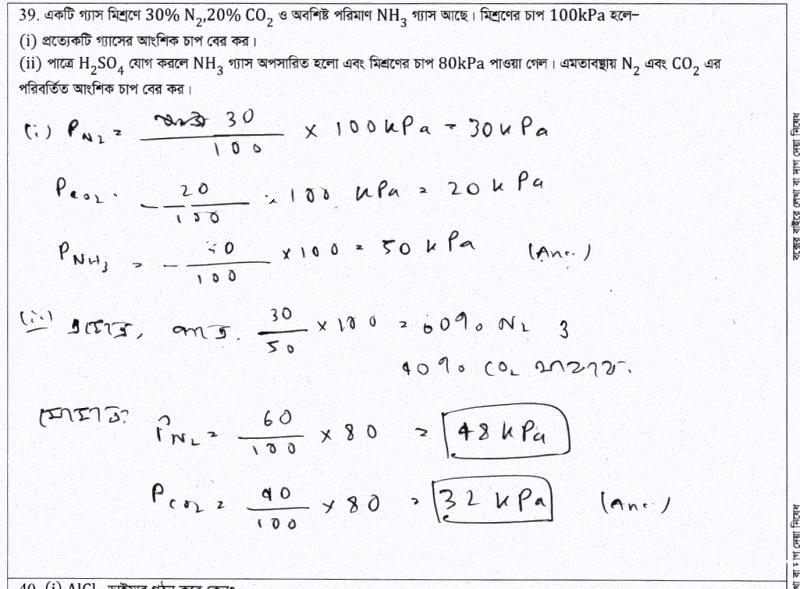 39. একটি গ্যাস মিশ্রণে 30% N₂,20% CO₂ ও অবশিষ্ট পরিমাণ NH₃ গ্যাস আছে। মিশ্রণের চাপ 100kPa হলে–
(i) প্রত্যেকটি গ্যাসের আংশিক চাপ বের কর।
(ii) পাত্রে H₂SO₄ যোগ করলে NH₃ গ্যাস অপসারিত হলো এবং মিশ্রণের চাপ 80kPa পাওয়া গেল। এমতাবস্থায় N₂ এবং CO₂ এর
পরিবর্তিত আংশিক চাপ বের কর।
(i) P_N₂ = 30/100 × 100kPa = 30kPa
P_CO₂ = 20/100 × 100 kPa = 20 kPa
P_NH₃ = 50/100 × 100 = 50 kPa (Ans.)
(ii) 30/50 × 100 = 60% N₂ ও
40% CO₂
P_N₂ = 60/100 × 80 = 48 kPa
P_CO₂ = 40/100 × 80 = 32 kPa (Ans.)